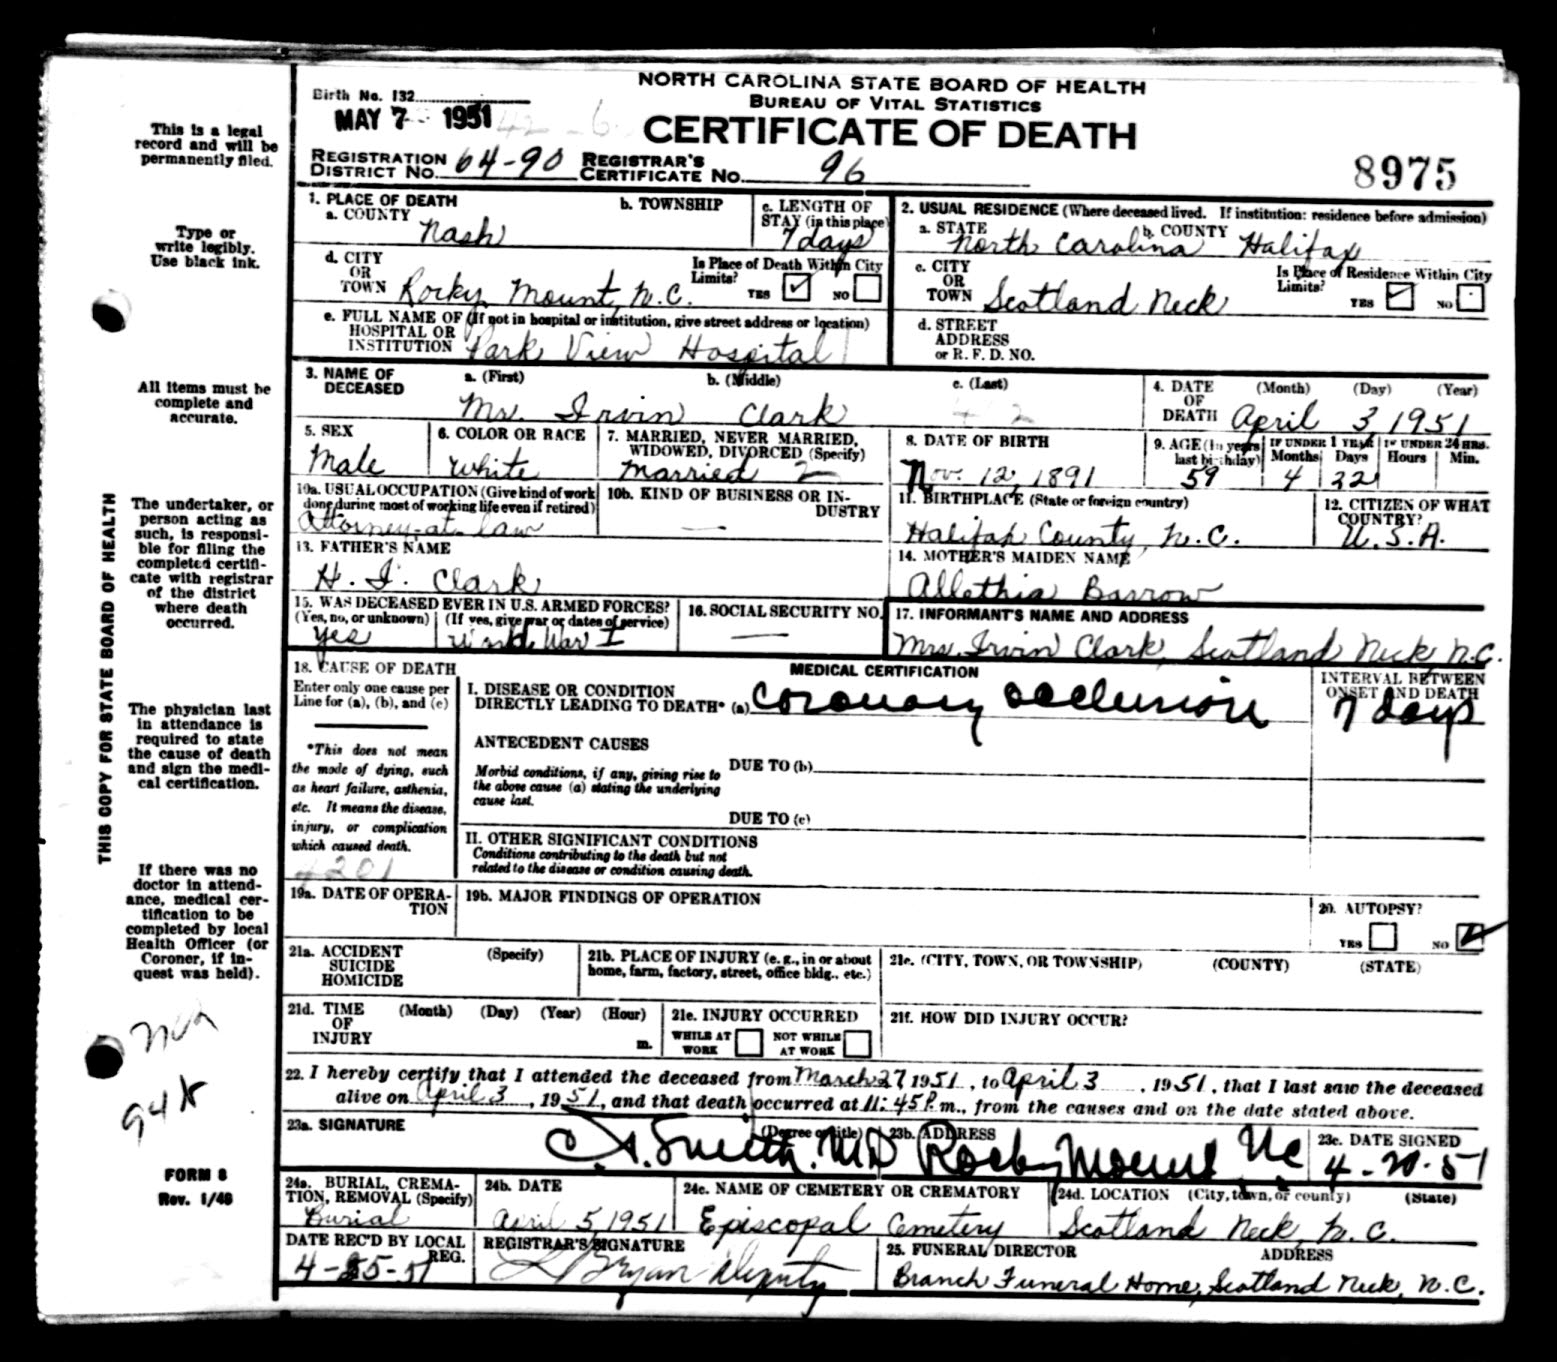 NORTH CAROLINA STATE BOARD OF HEALTH
BUREAU OF VITAL STATISTICS
CERTIFICATE OF DEATH
Birth No. 132
MAY 7 1951
REGISTRATION DISTRICT No. 64-90 REGISTRAR'S CERTIFICATE No. 96
8975
This is a legal record and will be permanently filed.
Type or write legibly. Use black ink.
All items must be complete and accurate.
The undertaker, or person acting as such, is responsible for filing the completed certificate with registrar of the district where death occurred.
The physician last in attendance is required to state the cause of death and sign the medical certification.
If there was no doctor in attendance, medical certification to be completed by local Health Officer (or Coroner, if inquest was held).
THIS COPY FOR STATE BOARD OF HEALTH
94 K
FORM 8
Rev. 1/48
1. PLACE OF DEATH
a. COUNTY Nash
b. TOWNSHIP
c. LENGTH OF STAY (in this place) 7 days
d. CITY OR TOWN Rocky Mount, N.C.
Is Place of Death Within City Limits? YES ✓ NO
e. FULL NAME OF HOSPITAL OR INSTITUTION (If not in hospital or institution, give street address or location) Park View Hospital
2. USUAL RESIDENCE (Where deceased lived. If institution: residence before admission)
a. STATE North Carolina b. COUNTY Halifax
c. CITY OR TOWN Scotland Neck
Is Place of Residence Within City Limits? YES ✓ NO
d. STREET ADDRESS or R. F. D. NO.
3. NAME OF DECEASED a. (First) b. (Middle) c. (Last)
Mr. Irvin Clark
4. DATE OF DEATH (Month) (Day) (Year) April 3, 1951
5. SEX Male
6. COLOR OR RACE White
7. MARRIED, NEVER MARRIED, WIDOWED, DIVORCED (Specify) Married 2
8. DATE OF BIRTH Nov. 12, 1891
9. AGE (In years last birthday) 59 IF UNDER 1 YEAR Months 4 Days 22 IF UNDER 24 HRS. Hours Min.
10a. USUAL OCCUPATION (Give kind of work done during most of working life even if retired) Attorney-at-law
10b. KIND OF BUSINESS OR INDUSTRY —
11. BIRTHPLACE (State or foreign country) Halifax County, N.C.
12. CITIZEN OF WHAT COUNTRY? U.S.A.
13. FATHER'S NAME H. I. Clark
14. MOTHER'S MAIDEN NAME Allethia Barrow
15. WAS DECEASED EVER IN U.S. ARMED FORCES? (Yes, no, or unknown) yes (If yes, give war or dates of service) World War I
16. SOCIAL SECURITY NO. —
17. INFORMANT'S NAME AND ADDRESS Mrs. Irvin Clark, Scotland Neck N.C.
18. CAUSE OF DEATH
Enter only one cause per Line for (a), (b), and (c)
MEDICAL CERTIFICATION
INTERVAL BETWEEN ONSET AND DEATH
I. DISEASE OR CONDITION DIRECTLY LEADING TO DEATH* (a) Coronary occlusion 7 days
*This does not mean the mode of dying, such as heart failure, asthenia, etc. It means the disease, injury, or complication which caused death.
4201
ANTECEDENT CAUSES
Morbid conditions, if any, giving rise to the above cause (a) stating the underlying cause last.
DUE TO (b)
DUE TO (c)
II. OTHER SIGNIFICANT CONDITIONS
Conditions contributing to the death but not related to the disease or condition causing death.
19a. DATE OF OPERATION
19b. MAJOR FINDINGS OF OPERATION
20. AUTOPSY? YES NO ✓
21a. ACCIDENT SUICIDE HOMICIDE (Specify)
21b. PLACE OF INJURY (e. g., in or about home, farm, factory, street, office bldg., etc.)
21c. (CITY, TOWN, OR TOWNSHIP) (COUNTY) (STATE)
21d. TIME OF INJURY (Month) (Day) (Year) (Hour) m.
21e. INJURY OCCURRED WHILE AT WORK NOT WHILE AT WORK
21f. HOW DID INJURY OCCUR?
22. I hereby certify that I attended the deceased from March 27 1951, to April 3, 1951, that I last saw the deceased
alive on April 3, 1951, and that death occurred at 11:45 P.m., from the causes and on the date stated above.
23a. SIGNATURE (Degree or title) Smith. MD
23b. ADDRESS Rocky Mount N.C.
23c. DATE SIGNED 4-20-51
24a. BURIAL, CREMATION, REMOVAL (Specify) Burial
24b. DATE April 5, 1951
24c. NAME OF CEMETERY OR CREMATORY Episcopal Cemetery
24d. LOCATION (City, town, or county) (State) Scotland Neck, N.C.
DATE REC'D BY LOCAL REG. 4-25-51
REGISTRAR'S SIGNATURE Bryan Deputy
25. FUNERAL DIRECTOR ADDRESS
Branch Funeral Home, Scotland Neck, N.C.